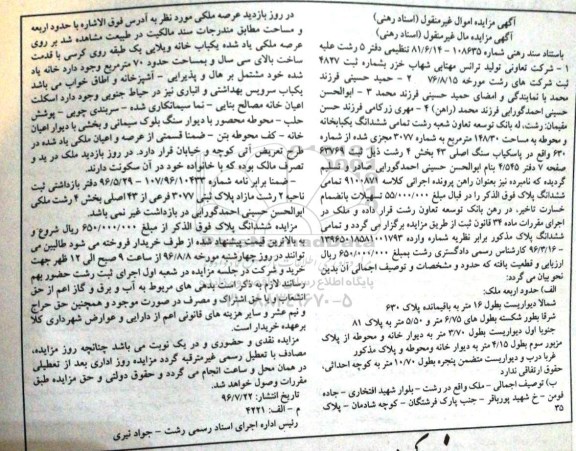 آگهی مزایده اموال غیرمنقول (اسناد رهنی)
آگهی مزایده مال غیرمنقول (اسناد رهنی)
باستناد سند رهنی شماره ۱۰۸۶۳۵ - ۸۱/۶/۱۴ تنظیمی دفتر ۵ رشت علیه
۱ - شرکت تعاونی تولید ترانس مهتابی شهاب خزر بشماره ثبت ۴۸۲۷
ثبت شرکت های رشت مورخه ۷۶/۸/۱۵ ۲ - حمید حسینی فرزند
محمد با نمایندگی و امضای حمید حسینی فرزند محمد ۳ - ابوالحسن
حسینی احمدگورابی فرزند محمد (راهن) ۴ - مهری زرکامی فرزند حسن
مقیمان: رشت، له بانک توسعه تعاون شعبه رشت تمامی ششدانگ یکبابخانه
و محوطه به مساحت ۱۴۸/۳۰ مترمربع به شماره ۳۰۷۷ مجزی شده از شماره
۶۳۰ واقع در پاسکیاب سنگ اصلی ۴۳ بخش ۴ رشت ذیل ثبت ۶۳۷۶۹
صفحه ۷ دفتر ۴/۵۴۵ بنام ابوالحسن حسینی احمدگورابی صادر و تسلیم
گردیده که نامبرده نیز بعنوان راهن پرونده اجرائی کلاسه ۹۱۰۰۸۷۱ تمامی
ششدانگ پلاک فوق الذکر را در قبال مبلغ ۵۵/۰۰۰/۰۰۰ تسهیلات بانضمام
خسارت تاخیر، در رهن بانک توسعه تعاون رشت قرار داده و ملک در
اجرای مقررات ماده ۳۴ قانون ثبت از طریق مزایده برگزار می گردد و تمامی
ششدانگ پلاک مذکور برابر نظریه شماره وارده ۱۳۹۶۵۰۱۱۸۵۸۱۰۰۱۷۹۳
- ۹۶/۳/۱۶ کارشناس رسمی دادگستری رشت بمبلغ ۶۵۰/۰۰۰/۰۰۰ ریال
ارزیابی و قطعیت یافته که حدود و مشخصات و توصیف اجمالی آن بدین
نحو بیان می گردد:
الف) حدود اربعه ملک:
شمالا دیواریست بطول ۱۶ متر به باقیمانده پلاک ۶۳۰
شرقا بطور شکسته بطول های ۶/۷۵ متر و ۵/۵۰ متر به پلاک ۸۱
جنوبا اول دیواریست بطول ۳/۷۰ متر به دیوار خانه و محوطه از پلاک
مزبور سوم بطول ۴/۱۵ متر به دیوار خانه ومحوطه و پلاک مذکور
غربا درب و دیواریست متضمن پنجره بطول ۱۰/۷۰ متر به کوچه احداثی،
حقوق ارتفاقی ندارد
ب) توصیف اجمالی - ملک واقع در رشت - بلوار شهید افتخاری - جاده
فومن - خ شهید پورباقر - جنب پارک فرشتگان - کوچه شادمان - پلاک
۳۵
در روز بازدید عرصه ملکی مورد نظر به آدرس فوق الاشاره با حدود اربعه
و مساحت مطابق مندرجات سند مالکیت در طبیعت مشاهده شد بر روی
عرصه ملکی یاد شده یکباب خانه ویلایی یک طبقه روی کرسی با قدمت
ساخت بالای سی سال و بمساحت حدود ۷۰ مترمربع وجود دارد خانه یاد
شده خود مشتمل بر هال و پذیرایی - آشپزخانه و اطاق خواب می باشد
یکباب سرویس بهداشتی و انباری نیز در حیاط جنوبی وجود دارد اسکلت
اعیان خانه مصالح بنایی - نما سیمانکاری شده - سربندی چوبی - پوشش
حلب - محوطه محصور با دیوار سنگ بلوک سیمانی و بخشی با دیوار اعیان
خانه - کف محوطه بتن - ضمنا قسمتی از عرصه و اعیان ملکی یاد شده در
طرح تعریض آتی کوچه و خیابان قرار دارد. در روز بازدید ملک در ید و
تصرف مالک بوده که با خانواده خود در آن سکونت دارند.
ضمنا برابر نامه شماره ۱۰۷/۹۶/۱۰۴۳۳ - ۹۶/۵/۲۹ دفتر بازداشتی ثبت
ناحیه ۲ رشت مازاد پلاک ثبتی ۳۰۷۷ فرعی از ۴۳ اصلی بخش ۴ رشت ملکی
ابوالحسن حسینی احمدگورابی در بازداشت غیر نمی باشد.
مزایده ششدانگ پلاک فوق الذکر از مبلغ ۶۵۰/۰۰۰/۰۰۰ ریال شروع و
به بالاترین قیمت پیشنهاد شده از طرف خریدار فروخته می شود طالبین می
توانند در روز چهارشنبه مورخه ۹۶/۸/۸ از ساعت ۹ صبح الی ۱۲ ظهر جهت
خرید و شرکت در جلسه مزایده در شعبه اول اجرای ثبت رشت حضور بهم
رسانند لازم به ذکر است بدهی های مربوط به آب و برق و گاز اعم از حق
انشعاب و یا حق اشتراک و مصرف در صورت موجود و همچنین حق حراج
و نیم عشر و سایر هزینه های قانونی اعم از دارایی و عوارض شهرداری کلا
برعهده خریدار است.
مزایده نقدی و حضوری و در یک نوبت می باشد چنانچه روز مزایده،
مصادف با تعطیل رسمی غیرمترقبه گردد مزایده روز اداری بعد از تعطیلی
در همان محل و ساعت انجام می گردد و حقوق دولتی و حق مزایده طبق
مقررات وصول خواهد شد.
تاریخ انتشار: ۹۶/۷/۲۲
م - الف: ۴۲۲۱
رئیس اداره اجرای اسناد رسمی رشت - جواد نیری